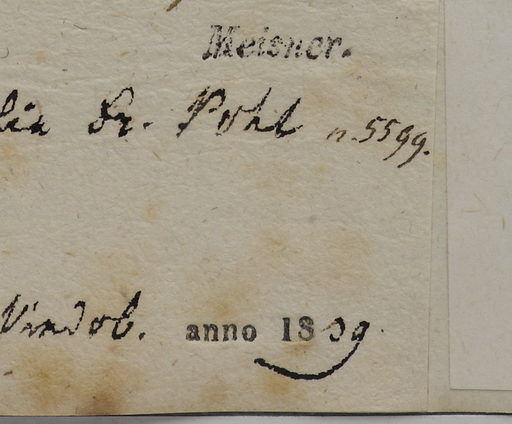 Meisner.
lia Dr. Pohl n. 5599.
Vindob. anno 1839